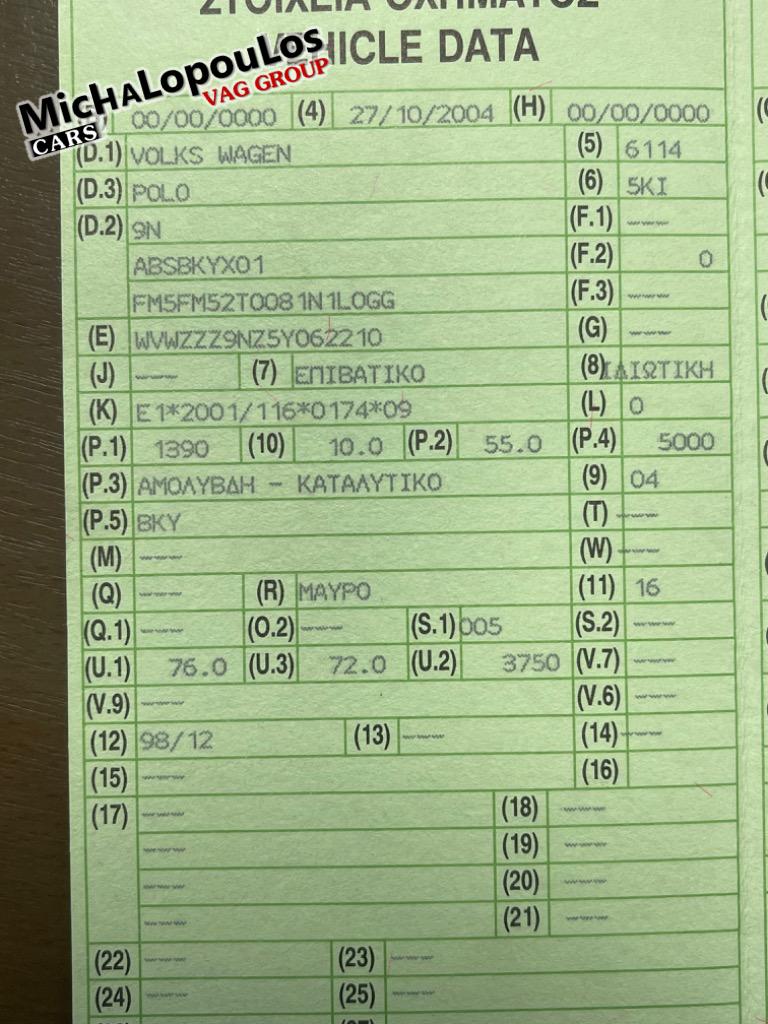 ΣΤΟΙΧΕΙΑ ΟΧΗΜΑΤΟΣ
VEHICLE DATA
MicHALopouLos
VAG GROUP
CARS
00/00/0000 (4) 27/10/2004 (H) 00/00/0000
(D.1) VOLKS WAGEN (5) 6114
(D.3) POLO (6) 5KI
(D.2) 9N (F.1) ---
ABSBKYX01 (F.2) 0
FM5FM52T0081N1LOGG (F.3) ---
(E) WVWZZZ9NZ5Y062210 (G) ---
(J) --- (7) ΕΠΙΒΑΤΙΚΟ (8) ΙΔΙΩΤΙΚΗ
(K) E1*2001/116*0174*09 (L) 0
(P.1) 1390 (10) 10.0 (P.2) 55.0 (P.4) 5000
(P.3) ΑΜΟΛΥΒΔΗ - ΚΑΤΑΛΥΤΙΚΟ (9) 04
(P.5) BKY (T) ---
(M) --- (W) ---
(Q) --- (R) ΜΑΥΡΟ (11) 16
(Q.1) --- (O.2) --- (S.1) 005 (S.2) ---
(U.1) 76.0 (U.3) 72.0 (U.2) 3750 (V.7) ---
(V.9) --- (V.6) ---
(12) 98/12 (13) --- (14) ---
(15) --- (16)
(17) --- (18) ---
--- (19) ---
--- (20) ---
--- (21) ---
(22) --- (23) ---
(24) --- (25) ---